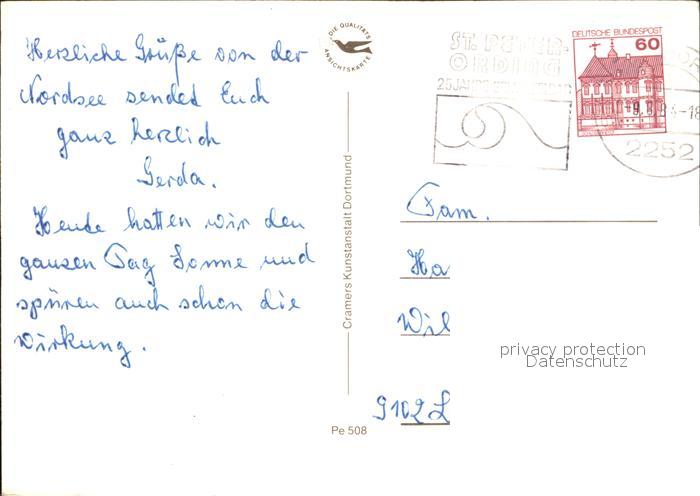 Herzliche Grüße von der
Nordsee sendet Euch
ganz herzlich
Gerda.
Heute hatten wir den
ganzen Tag Sonne und
spüren auch schon die
Wirkung.
DIE QUALITÄTS
ANSICHTSKARTE
Cramers Kunstanstalt Dortmund
Pe 508
ST. PETER-
ORDING
25 JAHRE
DEUTSCHE BUNDESPOST
60
-9.8.84-18
2252
Fam.
Ha
Wil
9102 L
privacy protection
Datenschutz